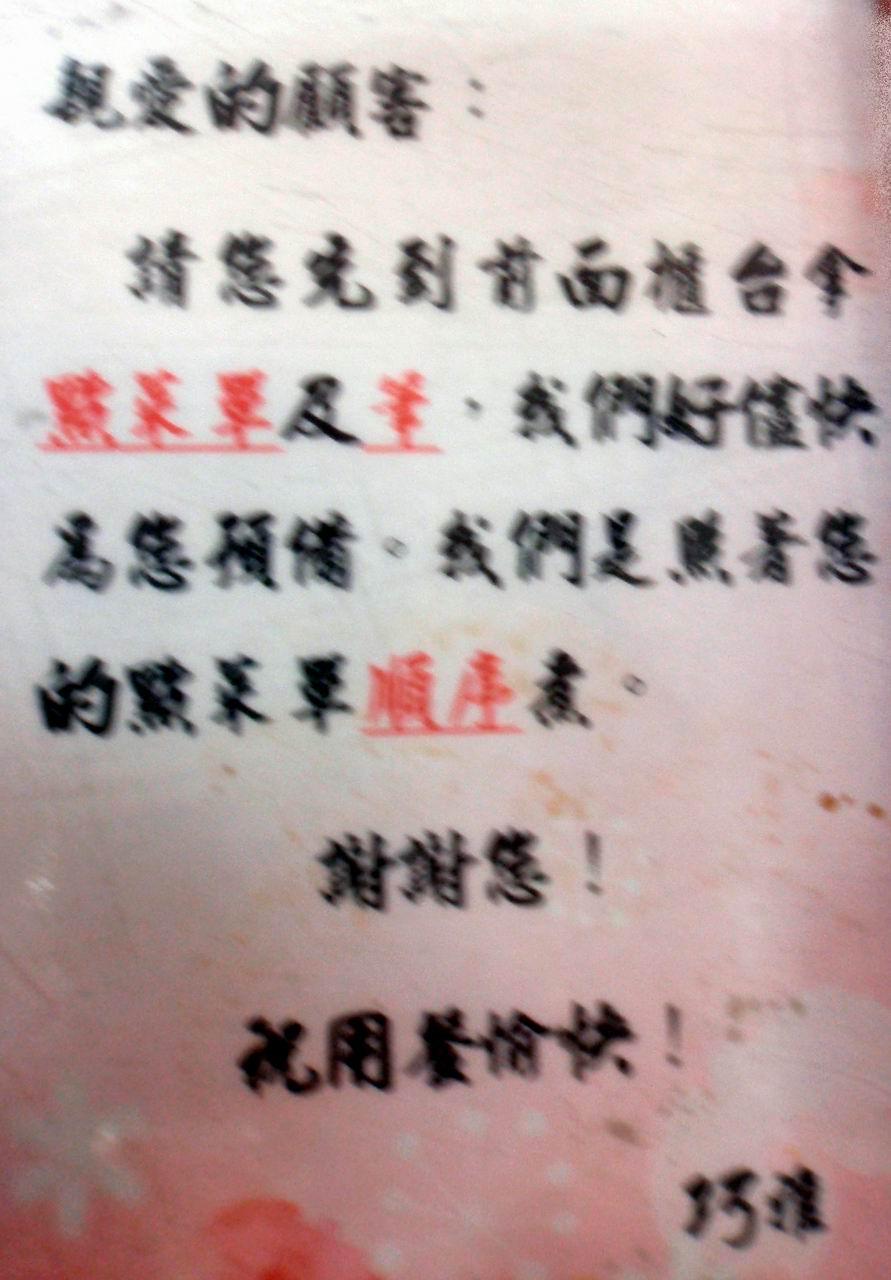 親愛的顧客：
請您先到前面櫃台拿
點菜單及筆，我們好儘快
為您預備。我們是照著您
的點菜單順序煮。
謝謝您！
祝用餐愉快！
巧雅